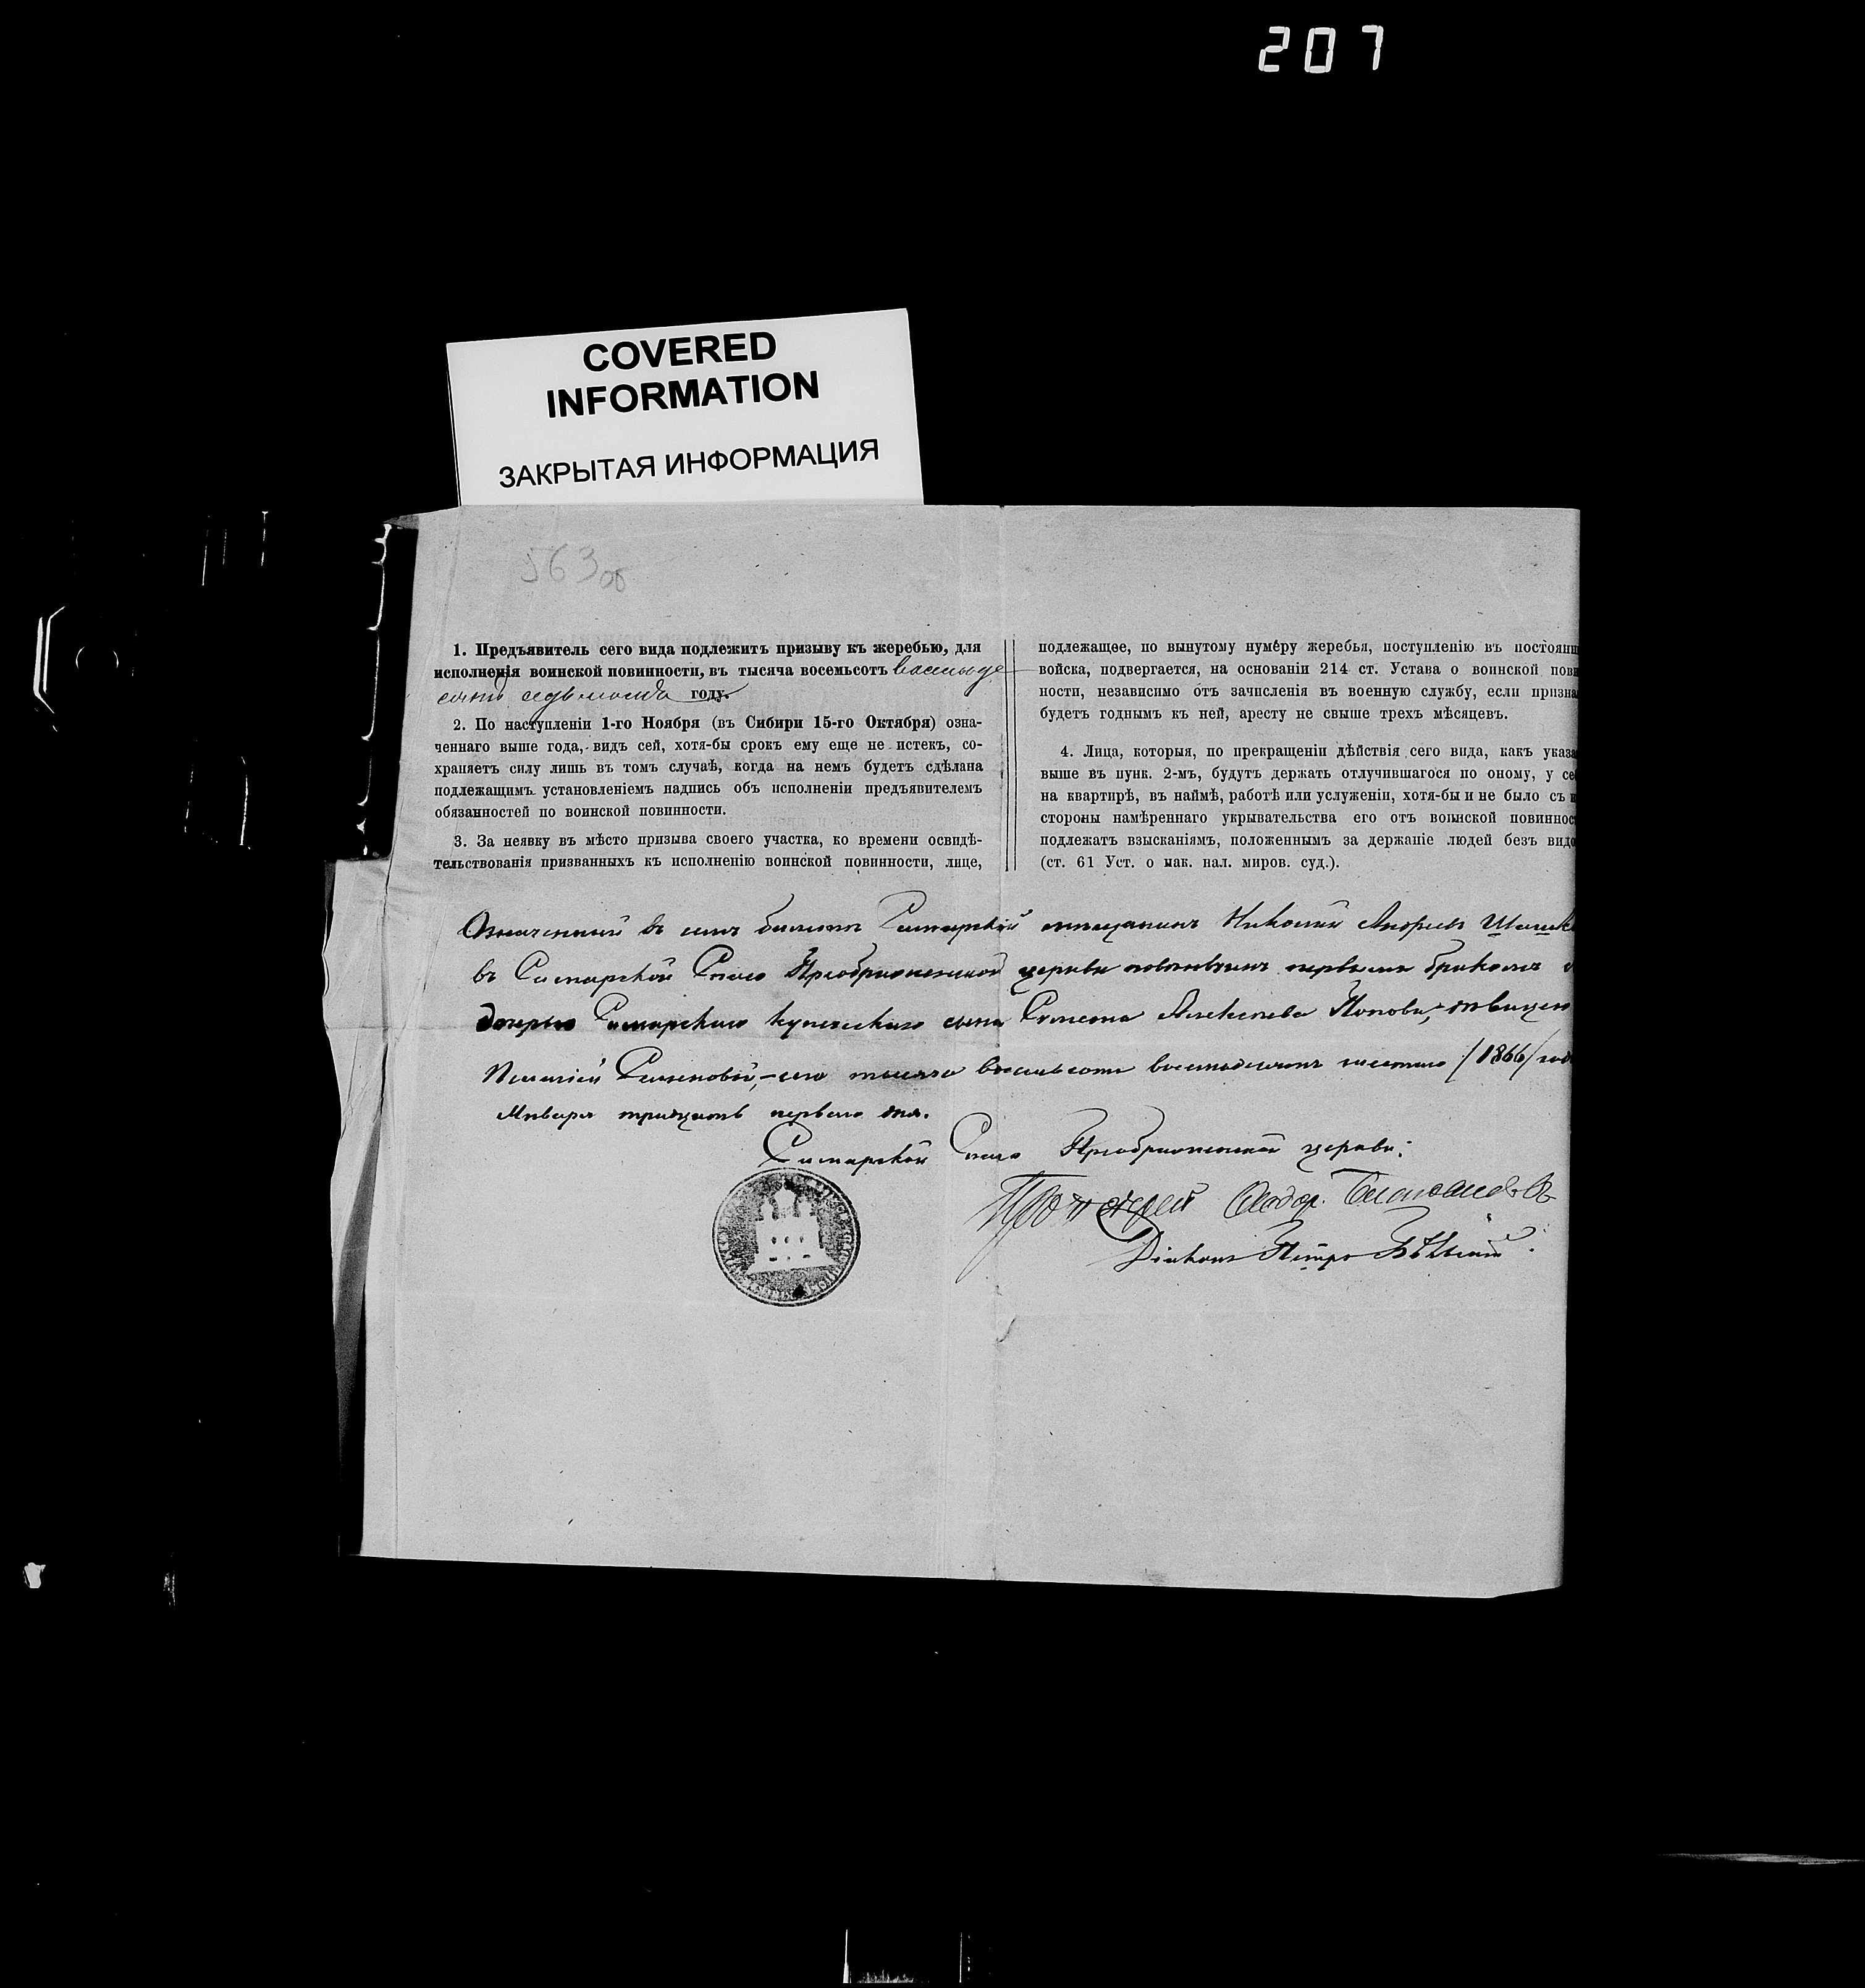 207
COVERED
INFORMATION
ЗАКРЫТАЯ ИНФОРМАЦИЯ
563 об
1. Предъявитель сего вида подлежитъ призыву къ жеребью, для
исполненія воинской повинности, въ тысяча восемьсотъ восемьде
сятъ седьмомъ году.
2. По наступленіи 1-го Ноября (въ Сибири 15-го Октября) озна-
ченнаго выше года, видъ сей, хотя-бы срокъ ему еще не истекъ, со-
храняетъ силу лишь въ томъ случаѣ, когда на немъ будетъ сдѣлана
подлежащимъ установленіемъ надпись объ исполненіи предъявителемъ
обязанностей по воинской повинности.
3. За неявку въ мѣсто призыва своего участка, ко времени освидѣ-
тельствованія призванныхъ къ исполненію воинской повинности, лице,
подлежащее, по вынутому нумеру жеребья, поступленію въ постоянн
войска, подвергается, на основаніи 214 ст. Устава о воинской пови
ности, независимо отъ зачисленія въ военную службу, если призна
будетъ годнымъ къ ней, аресту не свыше трехъ мѣсяцевъ.
4. Лица, которыя, по прекращеніи дѣйствія сего вида, какъ указа
выше въ пунк. 2-мъ, будутъ держать отлучившагося по оному, у се
на квартирѣ, въ наймѣ, работѣ или услуженіи, хотя-бы и не было съ и
стороны намѣреннаго укрывательства его отъ воинской повиннос
подлежатъ взысканіямъ, положеннымъ за держаніе людей безъ видо
(ст. 61 Уст. о нак. нал. миров. суд.).
Означенный въ семъ билетѣ Самарскій мѣщанинъ Николай Андреевъ Шишк
въ Самарской Спасо Преображенской церкви повѣнчанъ первымъ бракомъ с
дочерью Самарскаго купеческаго сына Симеона Алексѣева Попова, дѣвицею
Симеоновой, сего тысяча восемьсотъ восемьдесятъ шестаго /1866/ год
Января тридцать перваго дня.
Самарской Спасо Преображенской церкви:
Протоіерей Ѳеодор.
Діаконъ Петръ